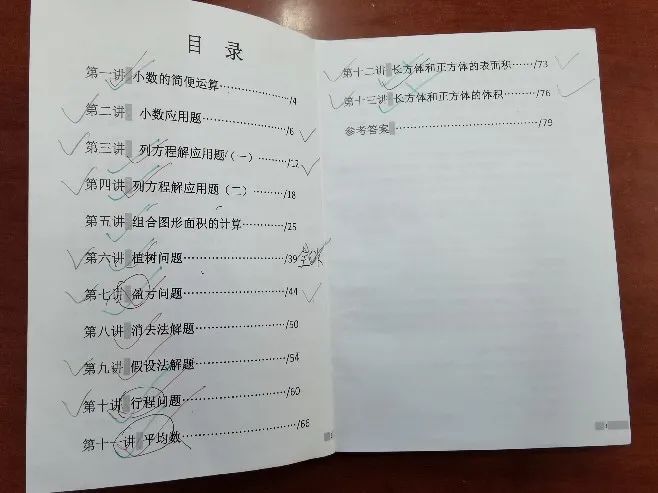 目 录
第一讲 小数的简便运算………/4
第二讲 小数应用题………/6
第三讲 列方程解应用题（一）………/12
第四讲 列方程解应用题（二）………/18
第五讲 组合图形面积的计算………/25
第六讲 植树问题………/39
第七讲 盈亏问题………/44
第八讲 消去法解题………/50
第九讲 假设法解题………/54
第十讲 行程问题………/60
第十一讲 平均数………/66
第十二讲 长方体和正方体的表面积……/73
第十三讲 长方体和正方体的体积………/76
参考答案………/79